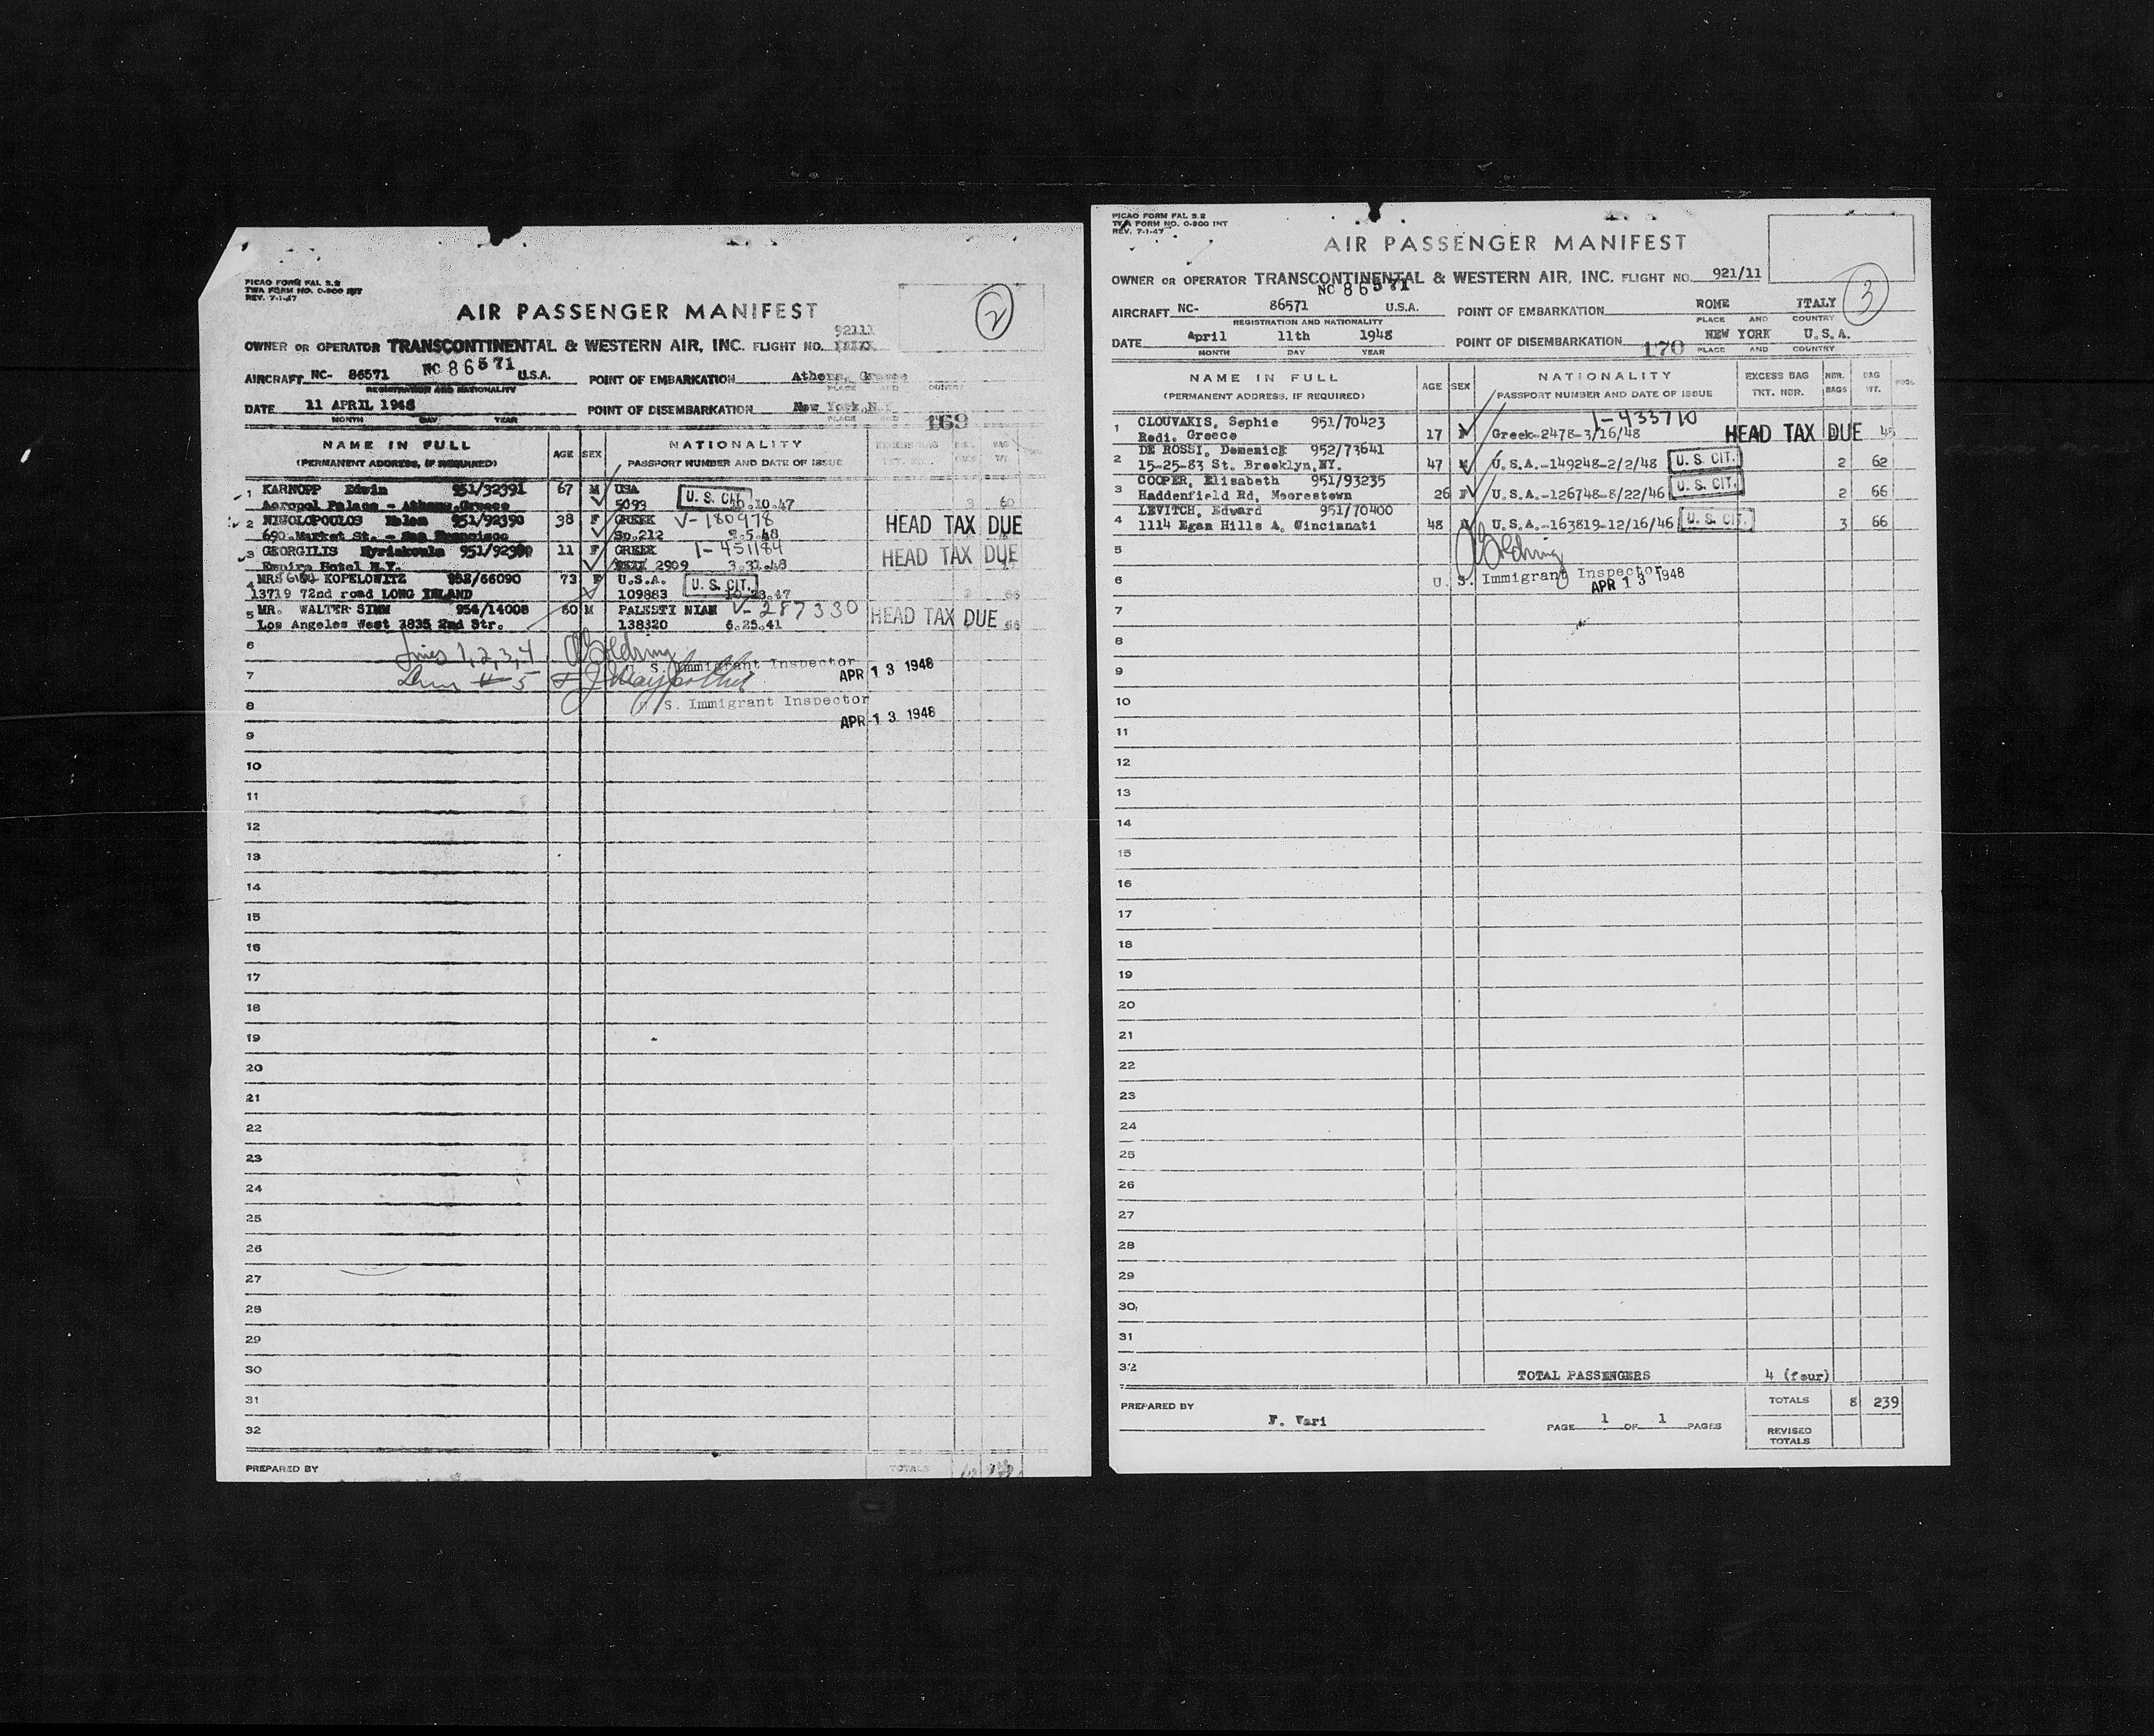 PICAO FORM FAL 3.2
TWA FORM NO. O-800 INT
REV. 7-1-47
AIR PASSENGER MANIFEST
2
92111
OWNER OR OPERATOR TRANSCONTINENTAL & WESTERN AIR, INC. FLIGHT NO.
NC 86571
AIRCRAFT NC- 86571 U.S.A. POINT OF EMBARKATION Athens, Greece
REGISTRATION AND NATIONALITY PLACE AND COUNTRY
DATE 11 APRIL 1948 POINT OF DISEMBARKATION New York,N.Y.
MONTH DAY YEAR PLACE AND
169
NAME IN FULL AGE SEX NATIONALITY
(PERMANENT ADDRESS, IF REQUIRED) PASSPORT NUMBER AND DATE OF ISSUE
1 KARNOPP Edwin 951/92391 67 M USA U. S. CIT.
Acropol Palace - Athens,Greece 5099 10.10.47 3 60
2 NIKOLOPOULOS Helen 951/92390 38 F GREEK V-180978 HEAD TAX DUE
690.Market St. - San Francisco Sp.212 2.5.48
3 GEORGILIS Kyriakoula 11 F GREEK 1-451184 HEAD TAX DUE
Empire Hotel N.Y. 2909 3.31.48
4 MRS KOPELOWITZ 952/66090 73 F U.S.A. U. S. CIT.
13719 72nd road LONG ISLAND 109883 10.23.47 66
5 MR. WALTER SIMM 954/14008 60 M PALESTI NIAN V-287330 HEAD TAX DUE
Los Angeles West 3835 2nd Str. 138320 6.25.41 66
6 lines 1,2,3,4
U. S. Immigrant Inspector
7 Line # 5 APR 13 1948
8 U. S. Immigrant Inspector
APR 13 1948
9
10
11
12
13
14
15
16
17
18
19
20
21
22
23
24
25
26
27
28
29
30
31
32
PREPARED BY TOTALS
PICAO FORM FAL 3.2
TWA FORM NO. O-800 INT
REV. 7-1-47
AIR PASSENGER MANIFEST
3
OWNER OR OPERATOR TRANSCONTINENTAL & WESTERN AIR, INC. FLIGHT NO. 921/11
NC 86571
AIRCRAFT NC- 86571 U.S.A. POINT OF EMBARKATION ROME ITALY
REGISTRATION AND NATIONALITY PLACE AND COUNTRY
DATE April 11th 1948 POINT OF DISEMBARKATION NEW YORK U.S.A.
MONTH DAY YEAR 170 PLACE AND COUNTRY
NAME IN FULL AGE SEX NATIONALITY EXCESS BAG NBR. BAG
(PERMANENT ADDRESS, IF REQUIRED) PASSPORT NUMBER AND DATE OF ISSUE TKT. NBR. BAGS WT.
1-433710
1 CLOUVAKIS, Sophie 951/70423
Rodi, Greece 17 Greek-2478-3/16/48 HEAD TAX DUE 45
2 DE ROSSI, Domenick 952/73641
15-25-83 St. Brooklyn,NY. 47 U.S.A.-149248-2/2/48 U. S. CIT. 2 62
3 COOPER, Elisabeth 951/93235
Haddenfield Rd, Moorestown 26 F U.S.A.-126748-8/22/46 U. S. CIT. 2 66
4 LEVITCH, Edward 951/70400
1114 Egan Hills A. Cincinnati 48 U.S.A.-163819-12/16/46 U. S. CIT. 3 66
5
6 U. S. Immigrant Inspector
APR 13 1948
7
8
9
10
11
12
13
14
15
16
17
18
19
20
21
22
23
24
25
26
27
28
29
30
31
32
TOTAL PASSENGERS 4 (four)
PREPARED BY F. Vari PAGE 1 OF 1 PAGES
TOTALS 8 239
REVISED
TOTALS